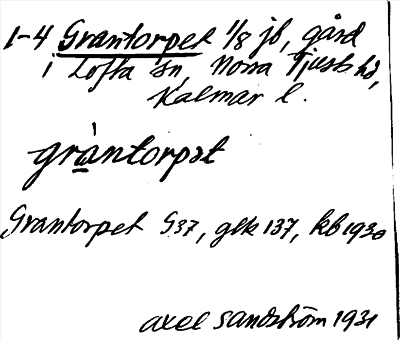 1-4 Grantorpet 1/8 jb, gård
i Lofta sn, Norra Tjusts hd,
Kalmar l.
gràntorpət
Grantorpet G37, glk 137, kb 1930
Axel Sandström 1931